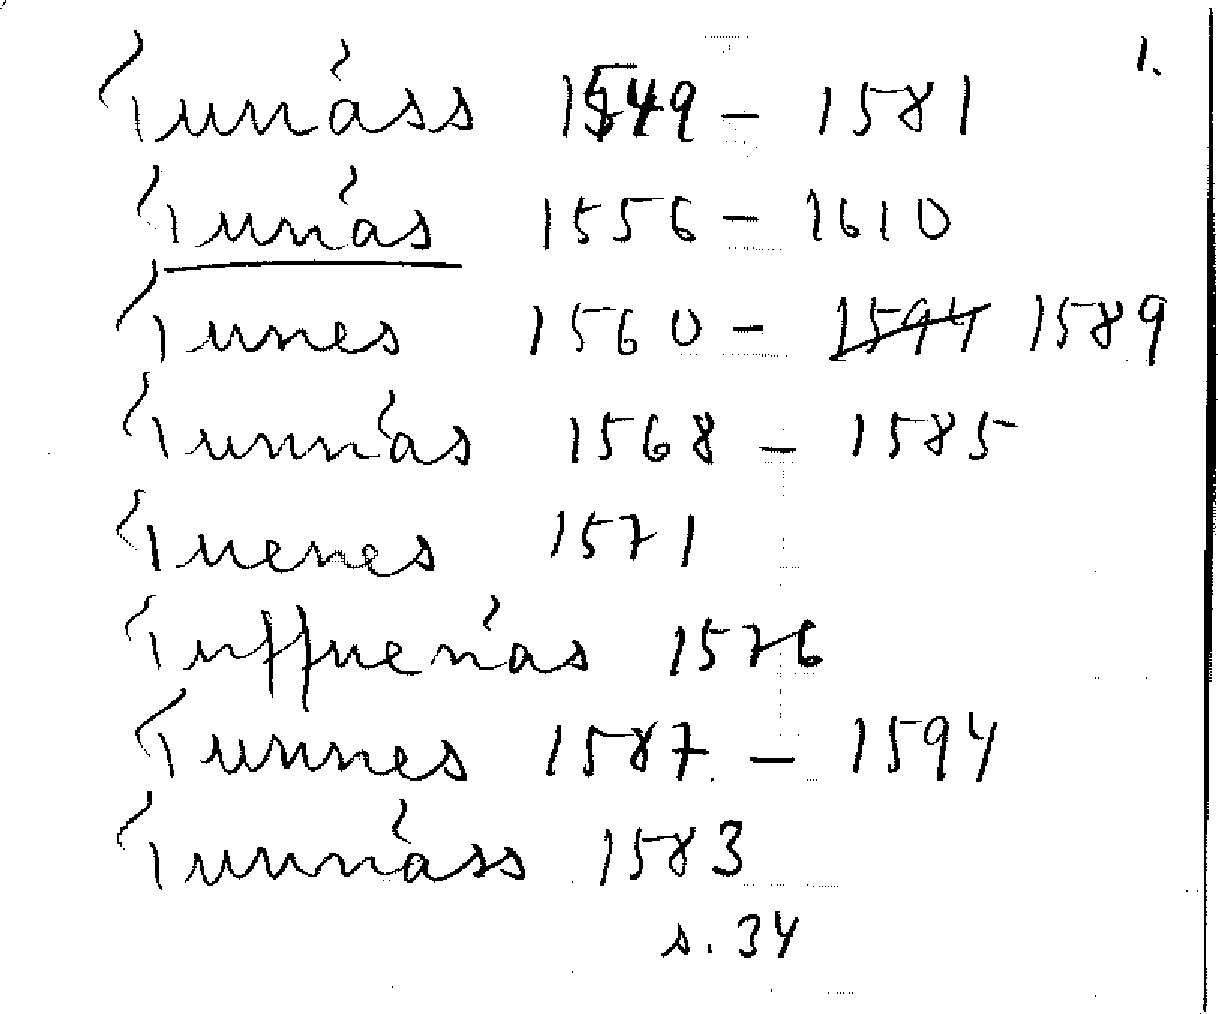 1.
Tunåss 1549 – 1581
Tunås 1556 – 1610
Tunes 1560 – 1594 1589
Tunnås 1568 – 1585
Tuenes 1571
Tuffuenås 1576
Tunnes 1587 – 1594
Tunnåss 1583
s. 34